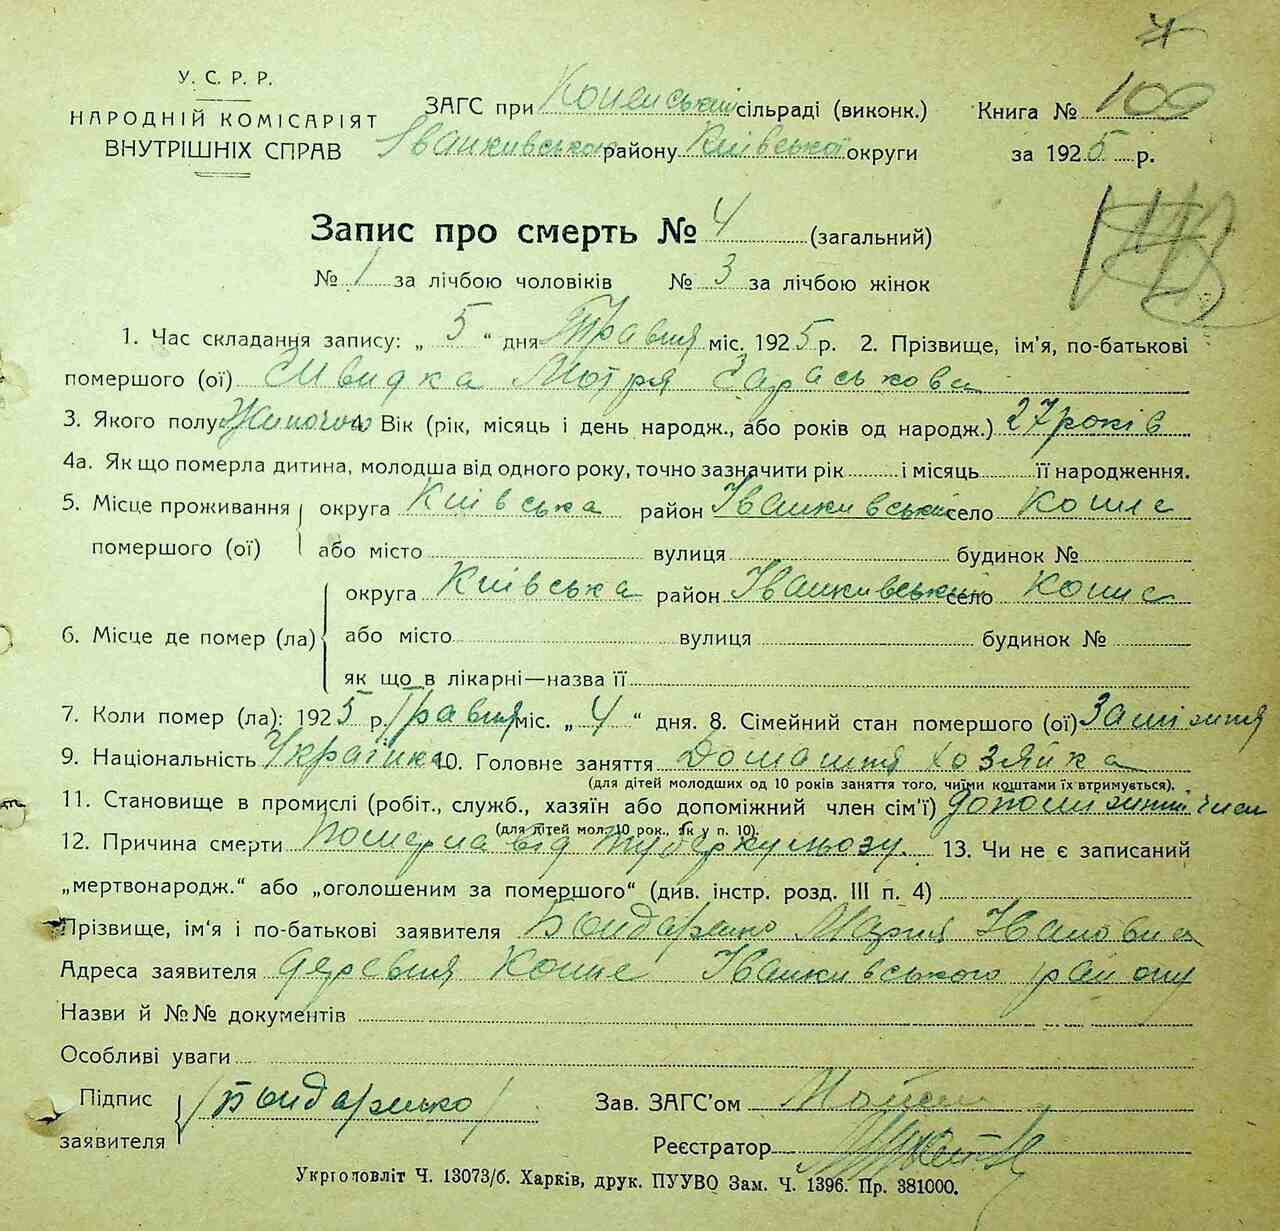 У. С. Р. Р.
НАРОДНІЙ КОМІСАРІЯТ
ВНУТРІШНІХ СПРАВ
ЗАГС при сільраді (виконк.)
Іванкивського району Київської округи
Книга № 109
за 1925 р.
Запис про смерть № 4 (загальний)
№ 1 за лічбою чоловіків № 3 за лічбою жінок
1. Час складання запису: „ 5 “ дня Травня міс. 1925 р. 2. Прізвище, ім'я, по-батькові
помершого (ої) Швидка Мотря
3. Якого полу Жиночого 4. Вік (рік, місяць і день народж., або років од народж.) 27 років
4а. Як що померла дитина, молодша від одного року, точно зазначити рік і місяць її народження.
5. Місце проживання помершого (ої) округа Київська район Іванкивський село
або місто вулиця будинок №
6. Місце де помер (ла) округа Київська район Іванкивський село
або місто вулиця будинок №
як що в лікарні—назва її
7. Коли помер (ла): 1925 р. Травня міс. „ 4 “ дня. 8. Сімейний стан помершого (ої)
9. Національність Українка 10. Головне заняття Домашня хозяйка
(для дітей молодших од 10 років заняття того, чиїми коштами їх втримується).
11. Становище в промислі (робіт., служб., хазяїн або допоміжний член сім'ї)
(для дітей мол. 10 рок., як у п. 10).
12. Причина смерти Померла від туберкульозу. 13. Чи не є записаний
„мертвонародж.“ або „оголошеним за помершого“ (див. інстр. розд. III п. 4)
Прізвище, ім'я і по-батькові заявителя Бондаренко Мария Ивановна
Адреса заявителя деревня Іванкивського району
Назви й №№ документів
Особливі уваги
Підпис заявителя Бондаренко
Зав. ЗАГС'ом
Реєстратор
Укрголовліт Ч. 13073/б. Харків, друк. ПУУВО Зам. Ч. 1396. Пр. 381000.